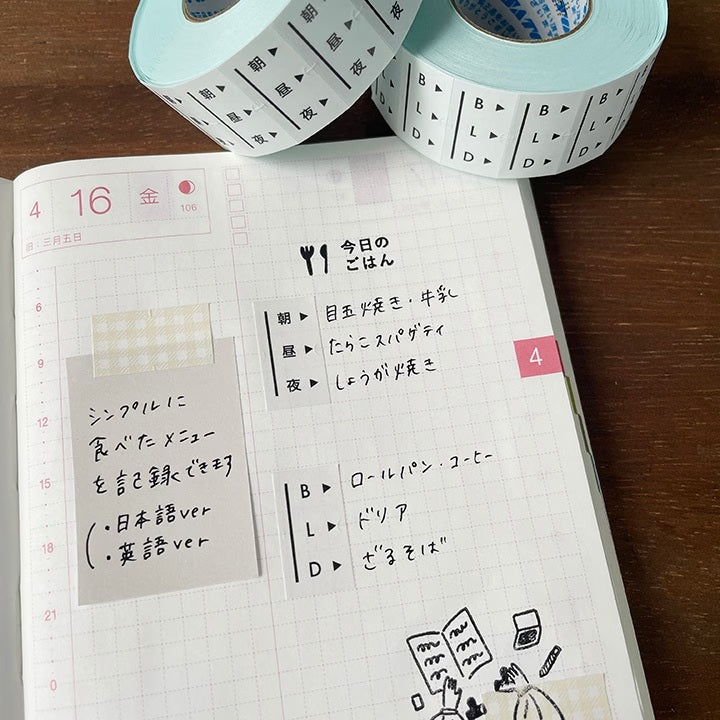 朝 ▶ 朝 ▶ 朝 ▶
昼 ▶ 昼 ▶ 昼 ▶
夜 ▶ 夜 ▶ 夜 ▶
B ▶ B ▶ B ▶ B ▶
L ▶ L ▶ L ▶ L ▶
D ▶ D ▶ D ▶ D ▶
4 16 金
106
旧:三月五日
今日の
ごはん
朝 ▶ 目玉焼き・牛乳
昼 ▶ たらこスパゲティ
夜 ▶ しょうが焼き
4
シンプルに
食べたメニュー
を記録できます
・日本語ver
・英語ver
B ▶ ロールパン・コーヒー
L ▶ ドリア
D ▶ ざるそば
6
9
12
15
18
21
0